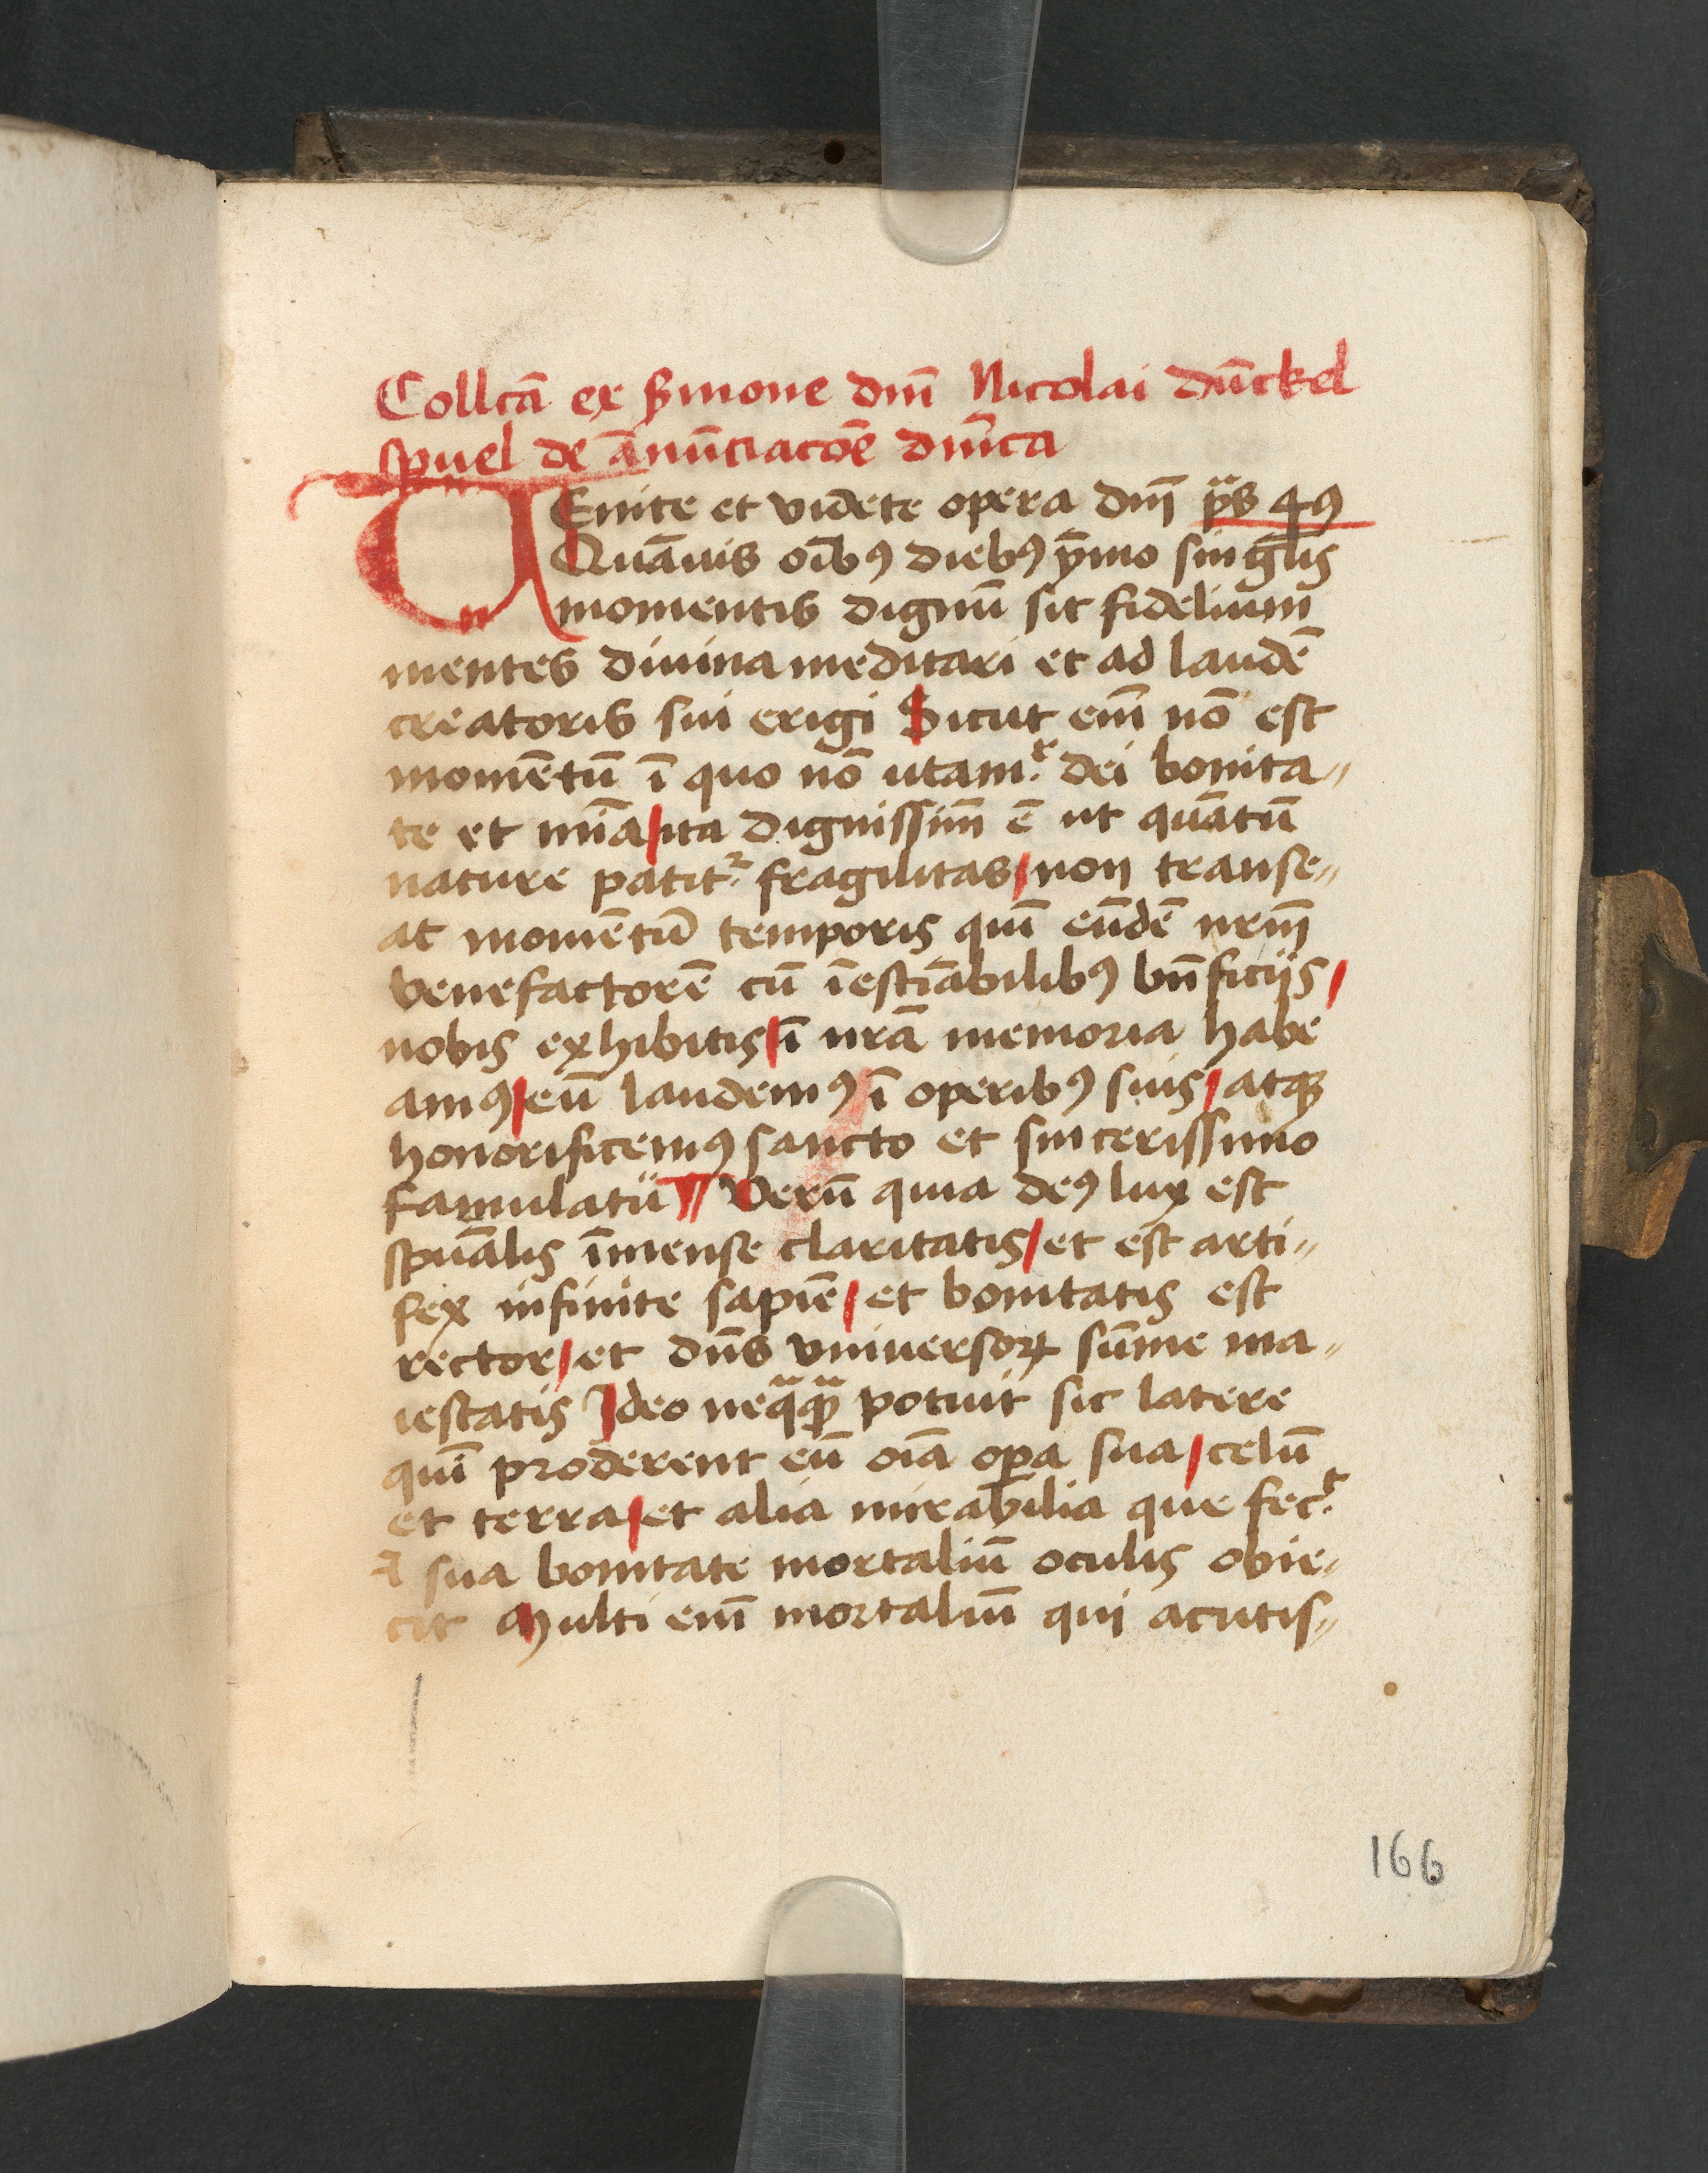 Collcā ex ẜmone dm̄ Nicolai dūckel
spuel de ānūciacōe dnīca
VEnite et videte opera dm̄ ps 49
Quāuis oībꝰ diebꝰ ymo singlis
momentis dignū sit fidelium
mentes diuina meditari et ad laudē
creatoris sui erigi Sicut em̄ nō est
momētū ī quo nō utamr dei bonita〃
te et mīa / ita dignissim̄ ē ut quātū
nature patitr fragilitas / non transe〃
at momētū temporis quī eūdē nrm̄
benefactorē cū īestīabilibꝰ bn̄ficijs /
nobis exhibitis / ī nrā memoria habe
amꝰ / eū laudemꝰ ī operibꝰ suis / atqꝫ
honorificemꝰ sancto et sincerissimo
famulatu ¶ Verū quia deꝰ lux est
spūalis īmense claritatis / et est arti〃
fex infinite sapiē / et bonitatis est
rector / et dn̄s vniuersoꝝ sūme ma〃
iestatis Ideo neqᵃqᵃ potuit sic latere
quī proderent eū oīa oꝑa sua / celū
et terra / et alia mirabilia que fecr
sua bonitate mortaliū oculis obie〃
cit Multi em̄ mortaliū qui acutis〃
166